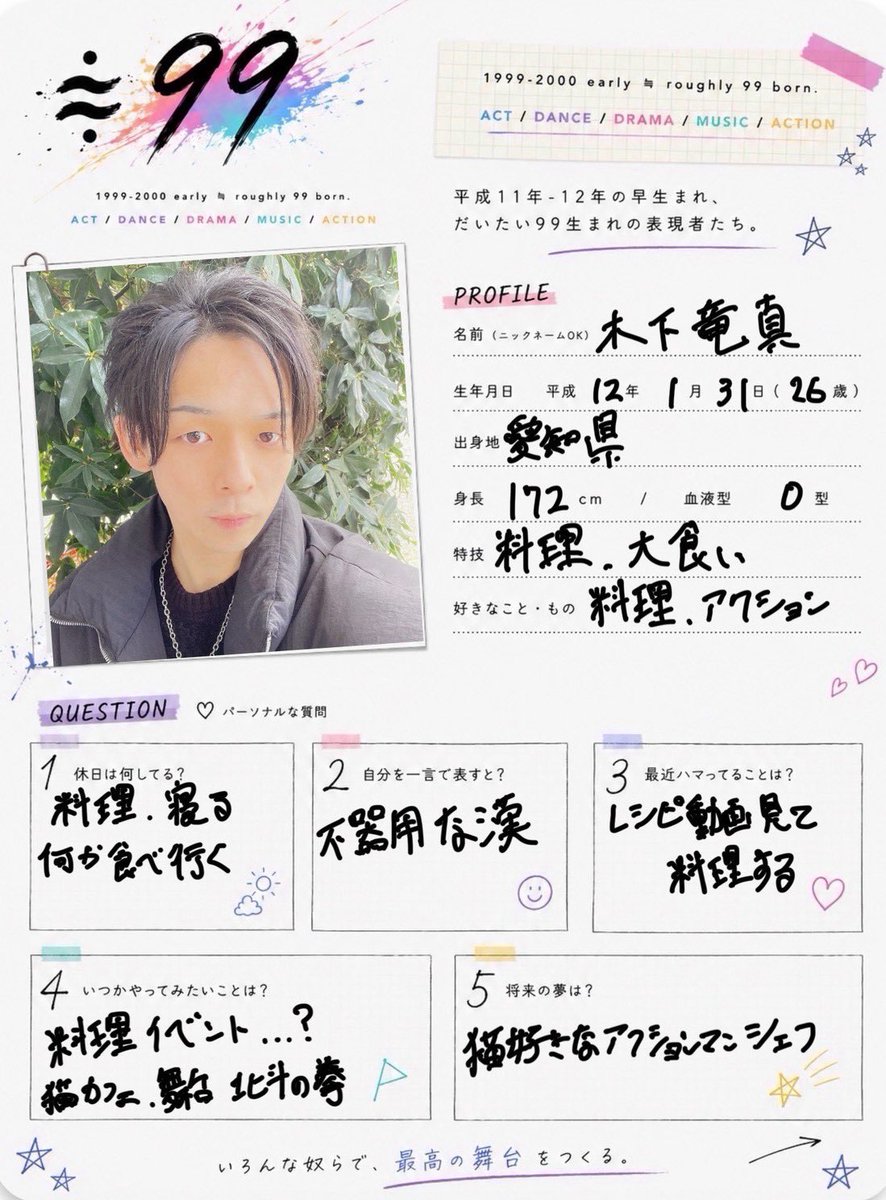 ≒99
1999-2000 early ≒ roughly 99 born.
ACT / DANCE / DRAMA / MUSIC / ACTION
1999-2000 early ≒ roughly 99 born.
ACT / DANCE / DRAMA / MUSIC / ACTION
平成11年-12年の早生まれ、
だいたい99生まれの表現者たち。
PROFILE
名前（ニックネームOK） 木下竜真
生年月日 平成 12年 1月 31日(26歳)
出身地 愛知県
身長 172 cm / 血液型 O 型
特技 料理、大食い
好きなこと・もの 料理、アクション
QUESTION ♡ パーソナルな質問
1 休日は何してる?
料理、寝る
何か食べ行く
2 自分を一言で表すと?
不器用な漢
3 最近ハマってることは?
レシピ動画見て
料理する
4 いつかやってみたいことは?
料理イベント...?
猫カフェ、舞台 北斗の拳
5 将来の夢は?
猫好きなアクションマンシェフ
いろんな奴らで、最高の舞台をつくる。